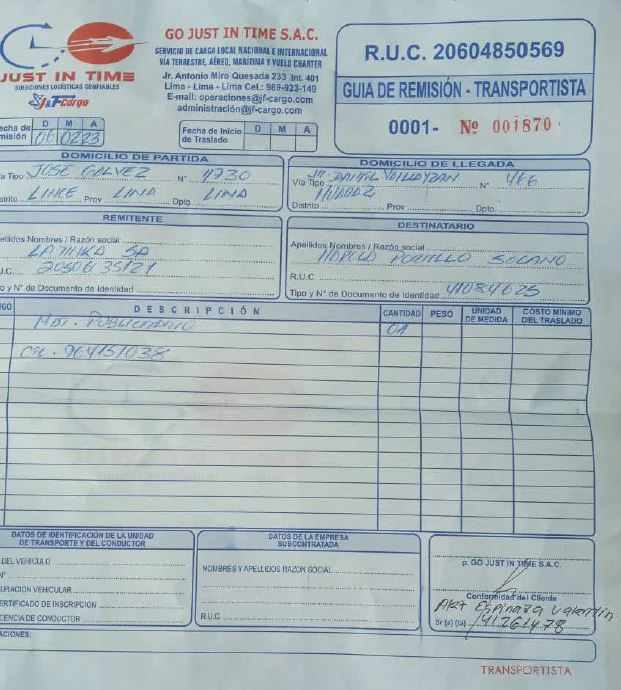 JUST IN TIME
SOLUCIONES LOGÍSTICAS CONFIABLES
J&F Cargo
GO JUST IN TIME S.A.C.
SERVICIO DE CARGA LOCAL NACIONAL E INTERNACIONAL
VÍA TERRESTRE, AÉREO, MARÍTIMA Y VUELO CHARTER
Jr. Antonio Miro Quesada 233 Int. 401
Lima - Lima - Lima Cel.: 989-923-149
E-mail: operaciones@jf-cargo.com
administración@jf-cargo.com
R.U.C. 20604850569
GUIA DE REMISIÓN - TRANSPORTISTA
0001- Nº 001870
echa de misión D M A
06 02 23
Fecha de Inicio de Traslado D M A
DOMICILIO DE PARTIDA
ía Tipo JOSE GALVEZ N° 4730
strito LINCE Prov LIMA Dpto. LIMA
DOMICILIO DE LLEGADA
Vía Tipo Jr. DANIEL N° 466
Distrito Prov Dpto.
REMITENTE
ellidos Nombres / Razón social
SA
U.C.
o y N° de Documento de Identidad
DESTINATARIO
Apellidos Nombres / Razón social
PORTILLO SOLANO
R.U.C.
Tipo y N° de Documento de Identidad 41084625
IGO DESCRIPCIÓN CANTIDAD PESO UNIDAD DE MEDIDA COSTO MINIMO DEL TRASLADO
MAT. PUBLICITARIO 01
CEL. 964151038
DATOS DE IDENTIFICACIÓN DE LA UNIDAD
DE TRANSPORTE Y DEL CONDUCTOR
DEL VEHICULO
N°
URACION VEHICULAR
ERTIFICADO DE INSCRIPCION
CENCIA DE CONDUCTOR
DATOS DE LA EMPRESA
SUBCONTRATADA
NOMBRES Y APELLIDOS RAZON SOCIAL
R.U.C
p. GO JUST IN TIME S.A.C.
Conformidad del Cliente
Espinoza Valentin
Sr (a) (ta) 41261478
ACIONES:
TRANSPORTISTA